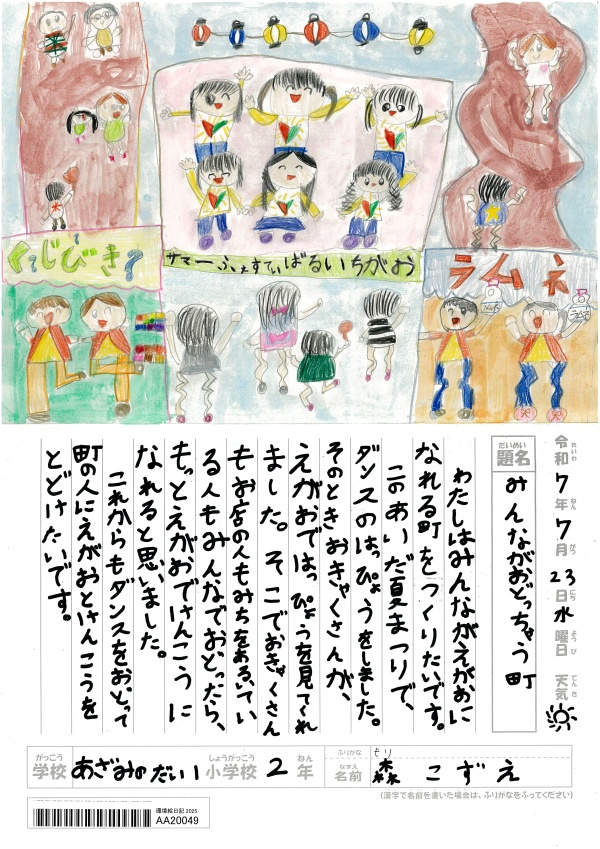 くじびき
サマーふぇすてぃばるいちがお
ラムネ
令和7年7月23日水曜日 天気
れいわ ねん がつ にち ようび てんき
題名 みんながおどっちゃう町
だいめい
わたしはみんながえがおに
なれる町をつくりたいです。
このあいだ夏まつりで、
ダンスのはっぴょうをしました。
そのときおきゃくさんが、
えがおではっぴょうを見てくれ
ました。そこでおきゃくさん
もお店の人もみちをあるいてい
る人もみんなでおどったら、
もっとえがおでけんこうに
なれると思いました。
これからもダンスをおどって
町の人にえがおとけんこうを
とどけたいです。
がっこう しょうがっこう ねん
学校 あざみのだい小学校 2年
ふりがな もり
なまえ
名前 森 こずえ
(漢字で名前を書いた場合は、ふりがなをふってください)
環境絵日記 2025
AA20049